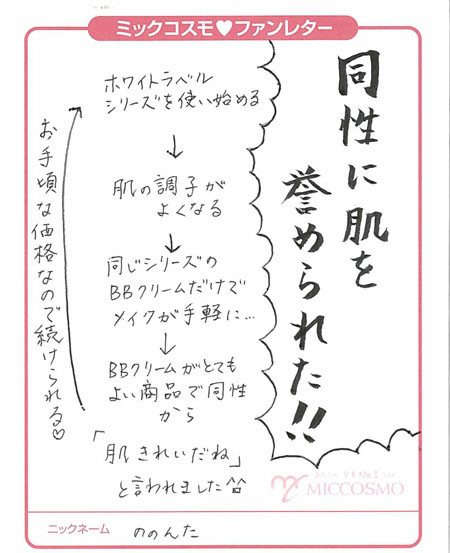 ミックコスモ♥ファンレター
同性に肌を
誉められた!!
ホワイトラベル
シリーズを使い始める
↓
肌の調子が
よくなる
↓
同じシリーズの
BBクリームだけで
メイクが手軽に…
↓
BBクリームがとても
よい商品で同性
から
「肌きれいだね」
と言われました^^
お手頃な価格なので続けられる♡
MICCOSMO
ニックネーム ののんた